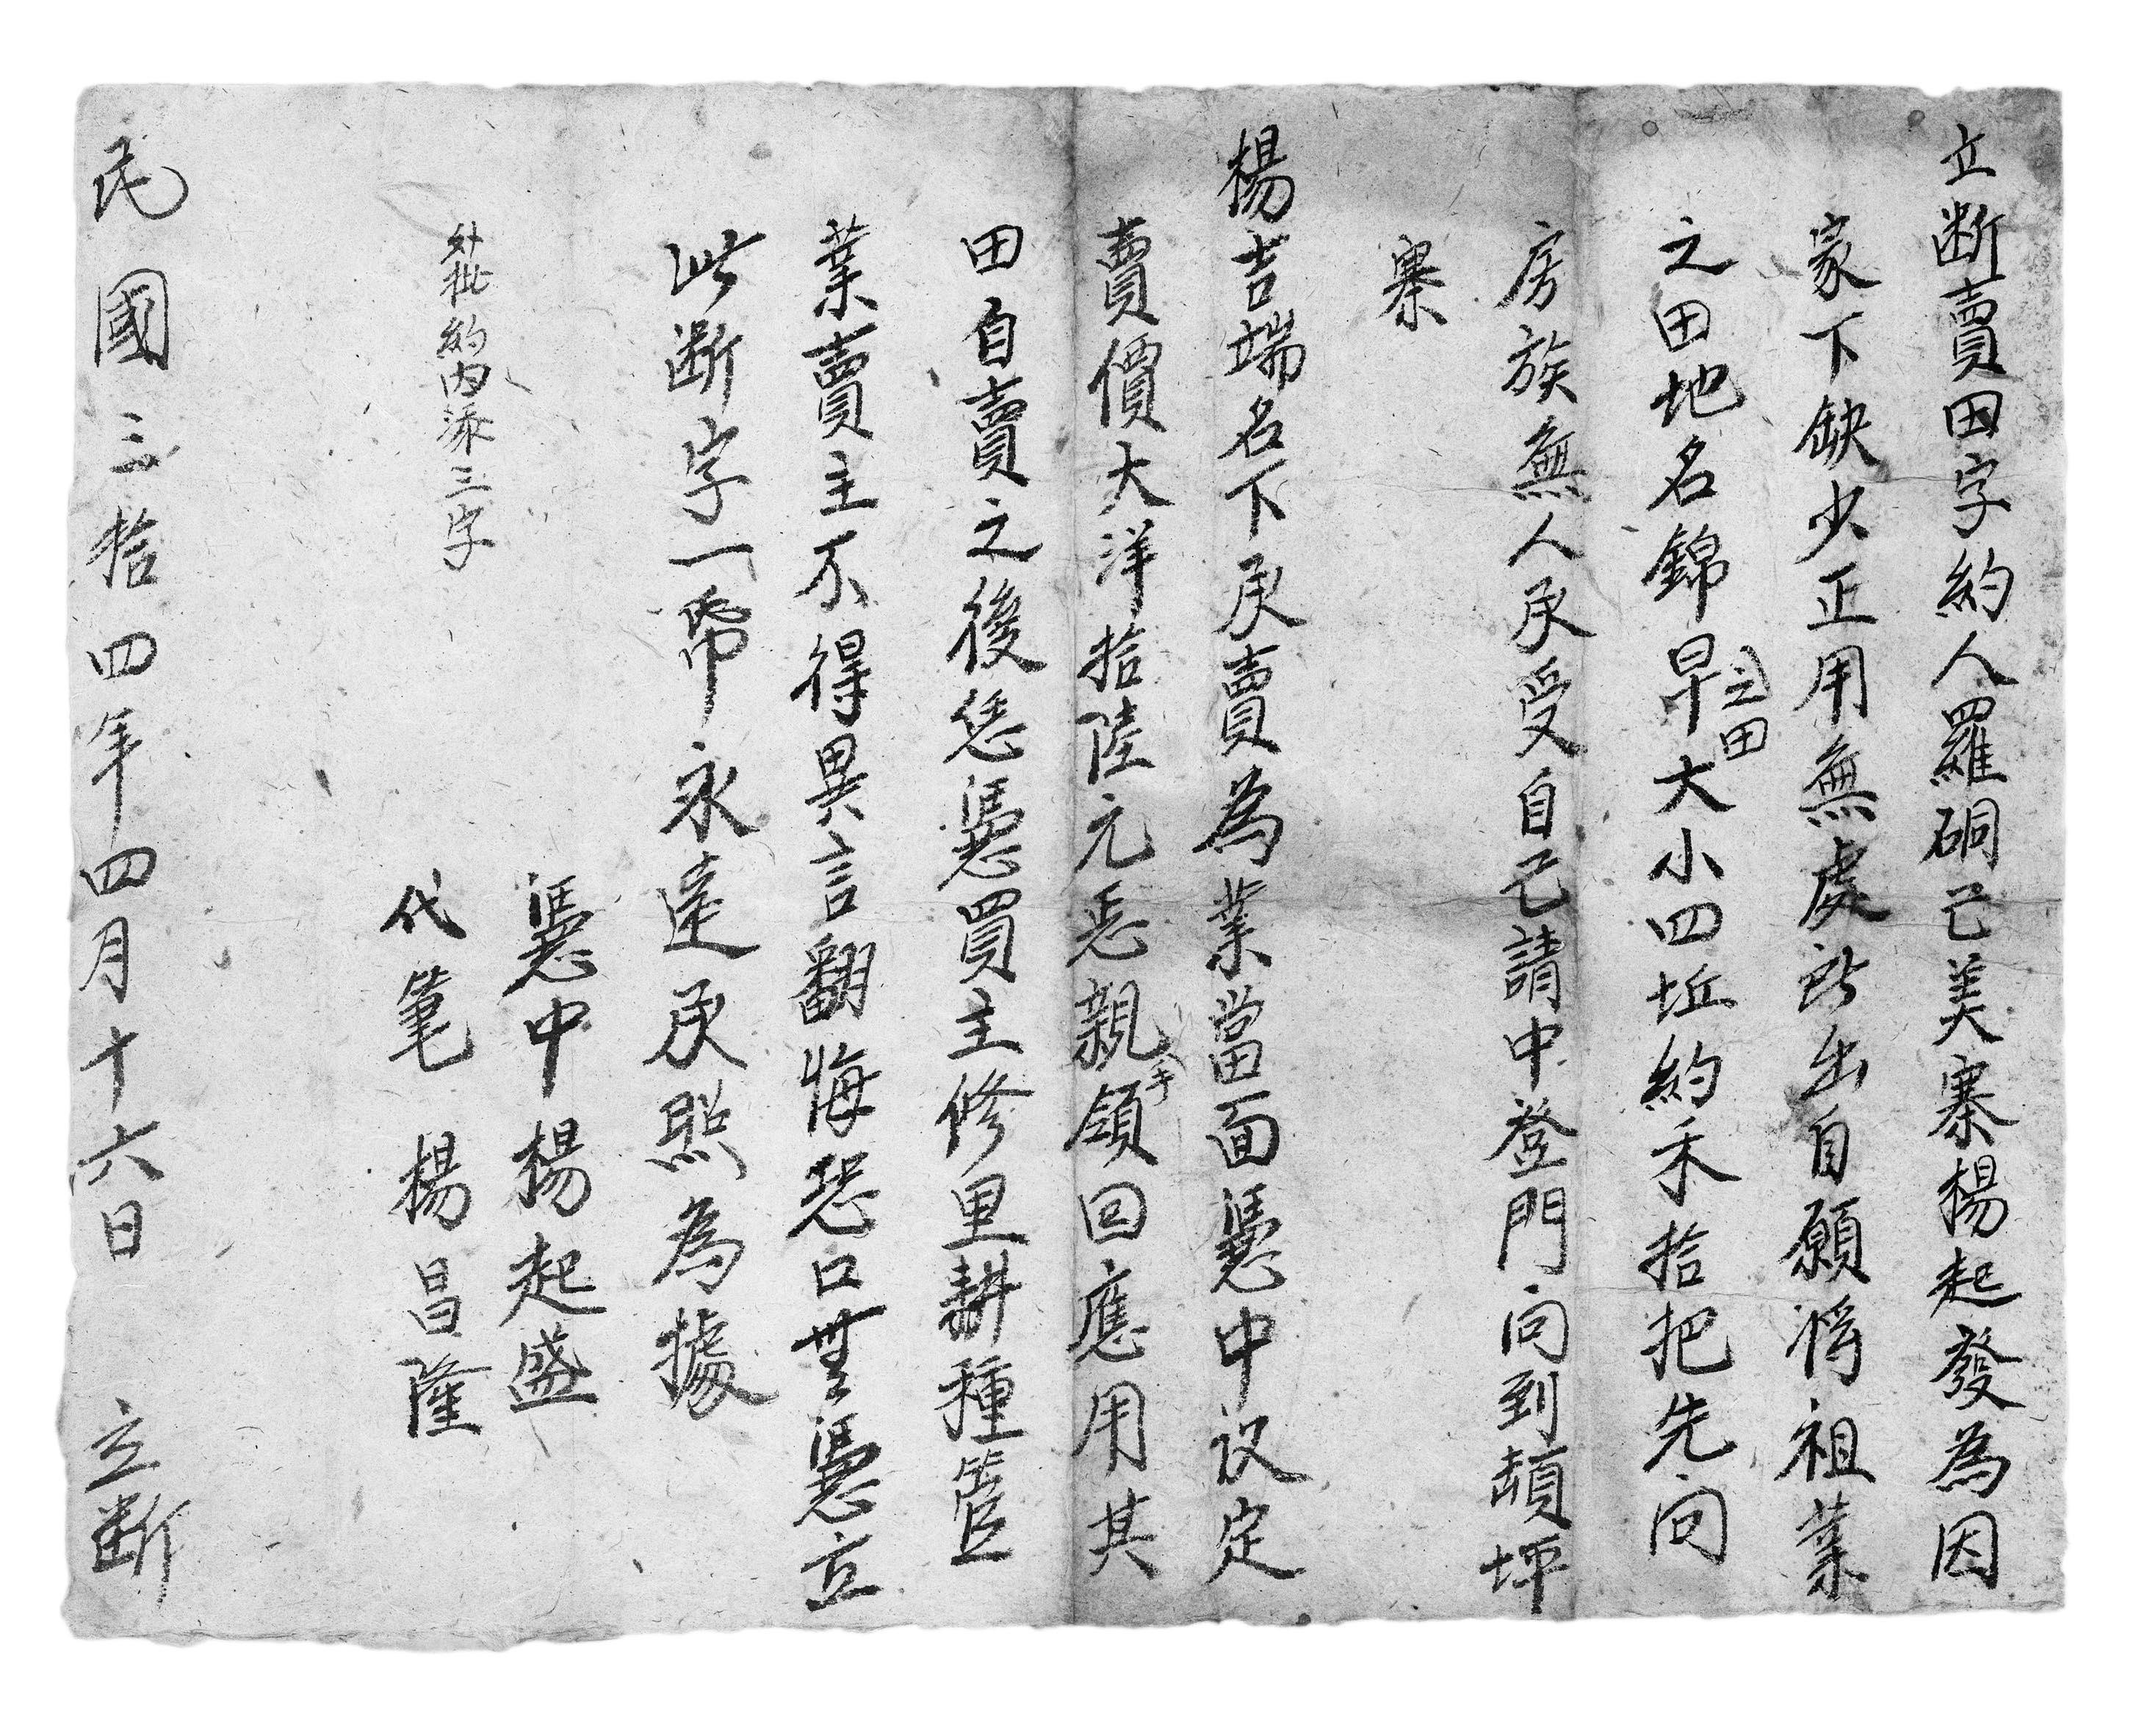 立断賣田字約人羅硐己美寨楊起發為因
家下缺少正用無處所出自願将祖業
之田地名錦早之田大小四坵約禾拾把先问
房族無人承受自己請中登門问到頡坪
寨
楊吉端名下承賣為業當面憑中议定
賣價大洋拾陸元乥親手領回應用其
田自賣之後恁憑買主修里耕種管
業賣主不得異言翻悔恐口無憑立
此断字一帋永遠承照為據
憑中楊起盛
外批約内添三字
代筆楊昌隆
民國三拾四年四月十六日 立断